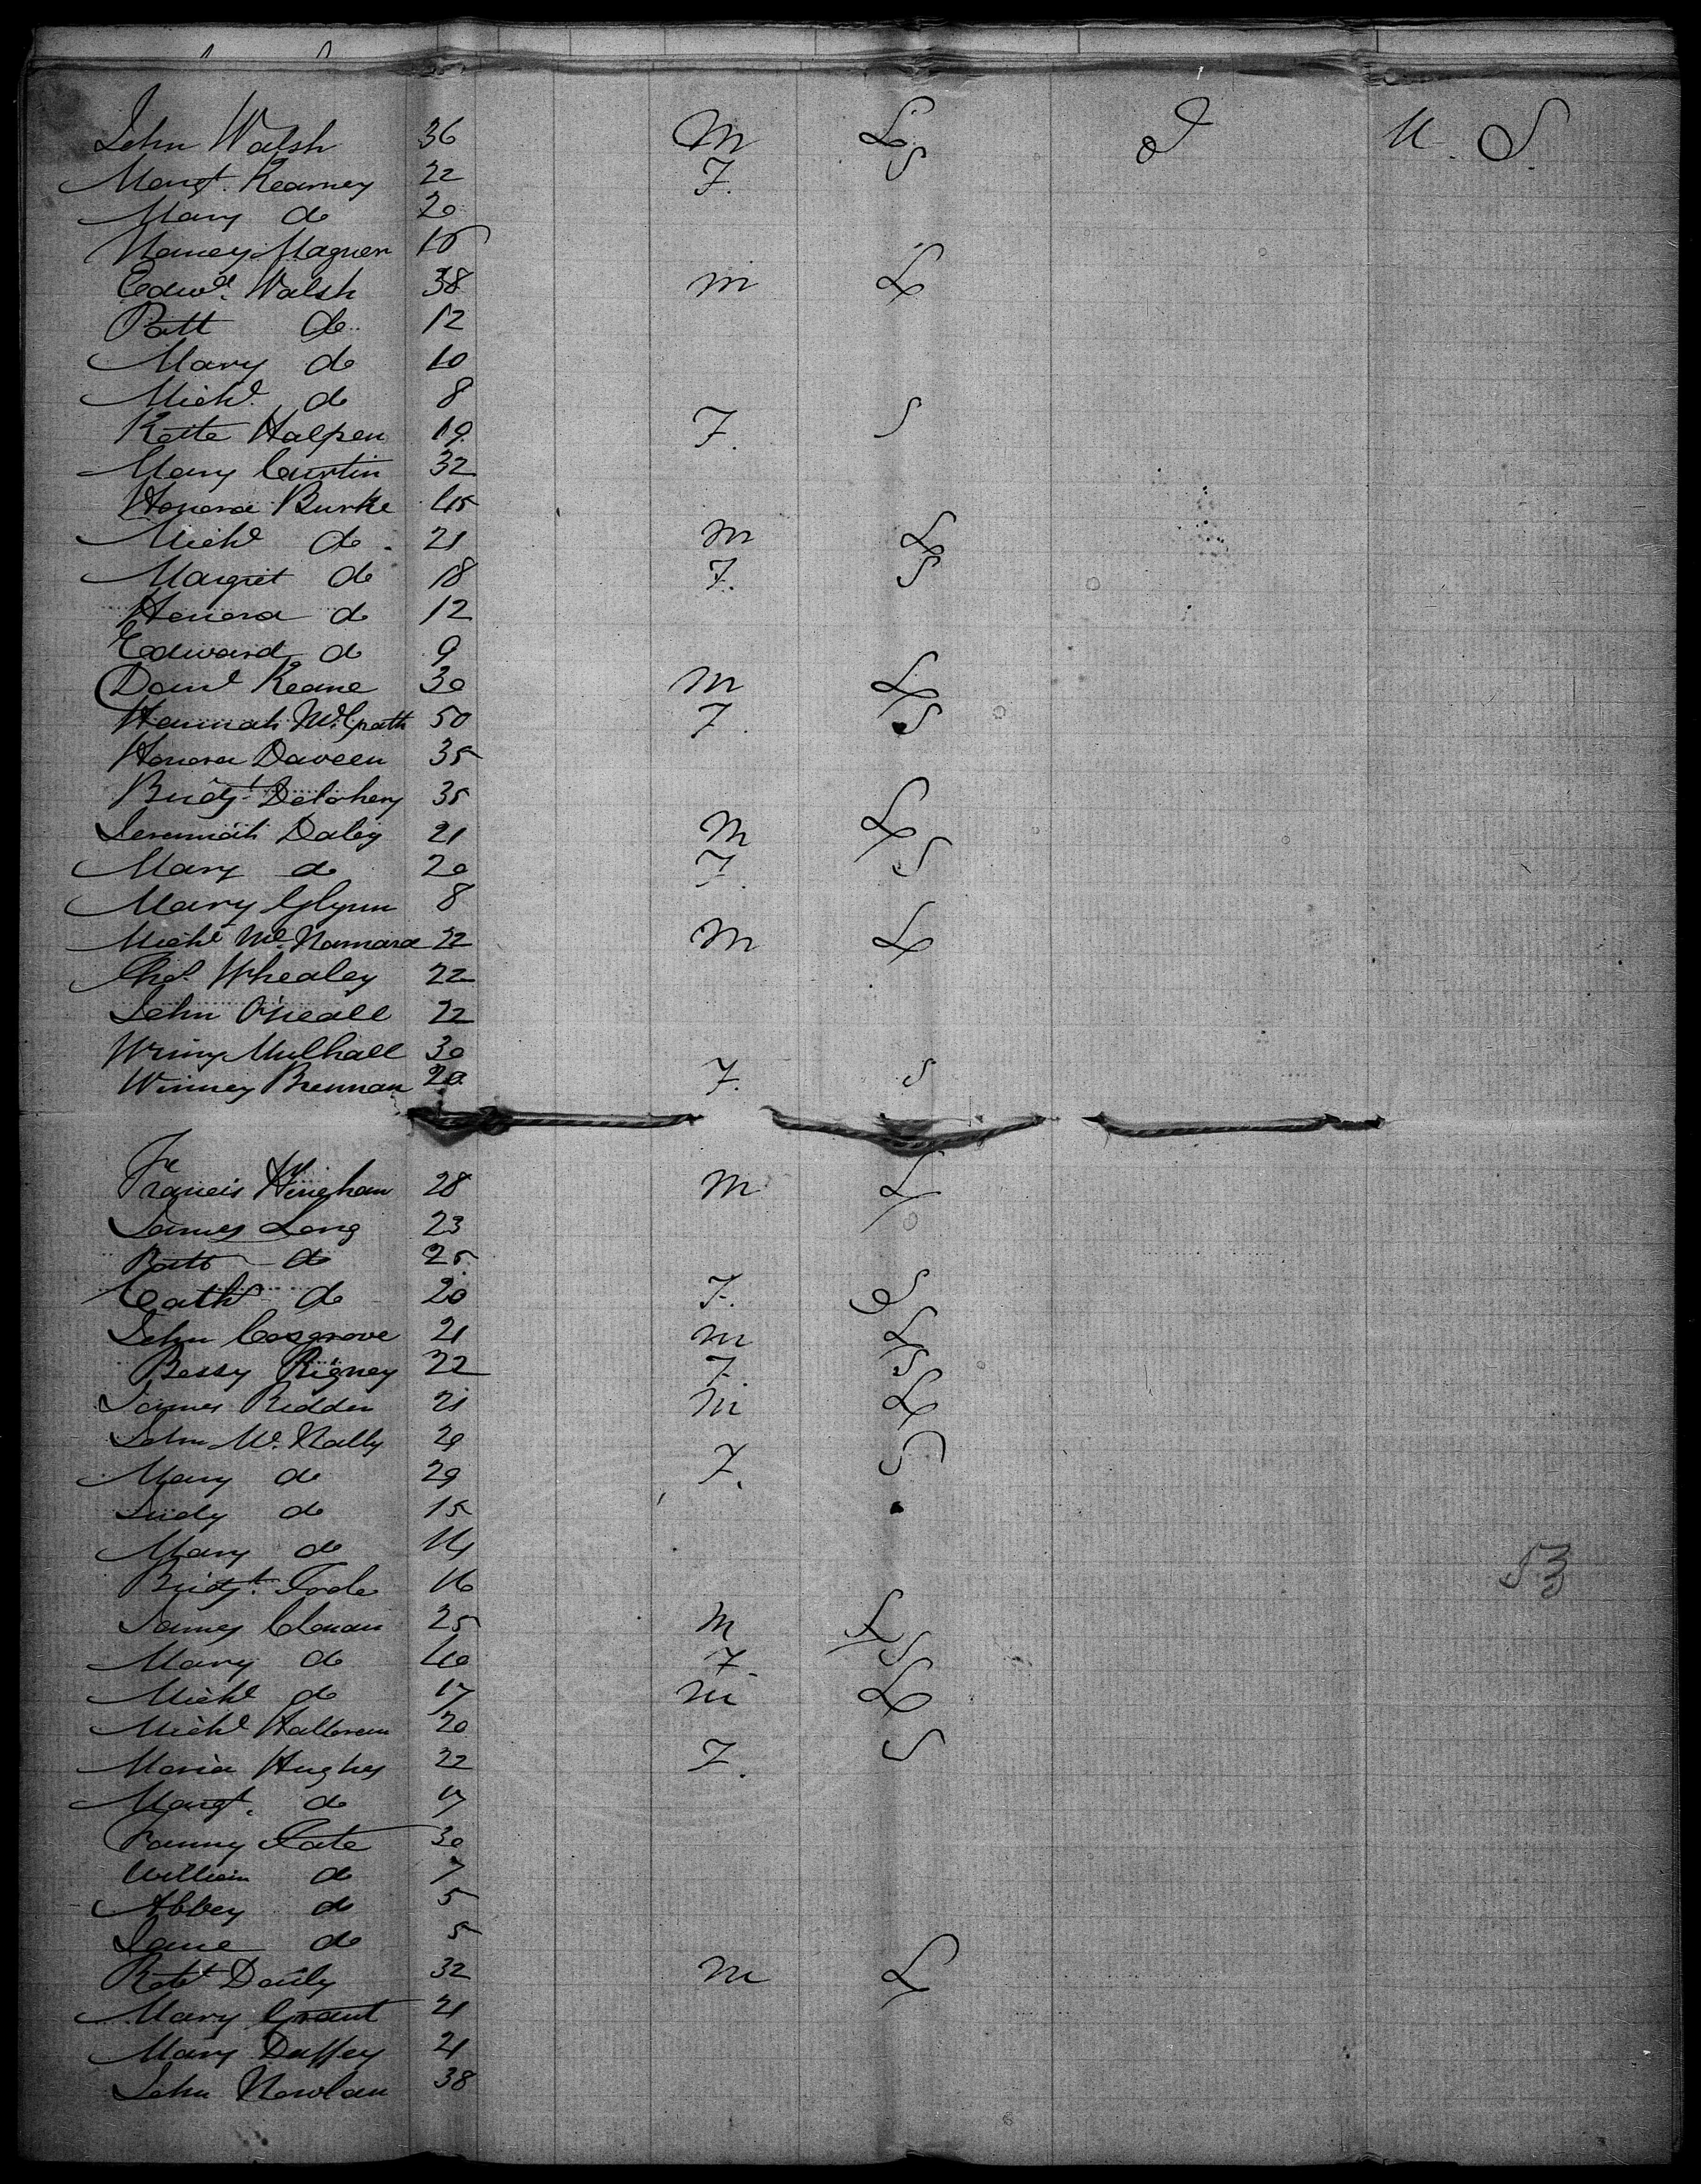 John Walsh 36 M L I U. S.
Margt. Kearney 22 F. S
Mary do 20
Nancy Magner 18
Edwd. Walsh 38 m L
Patt do 12
Mary do 10
Michl. do 8
Kate Halpen 19 F. S
Mary Curtin 32
Honora Burke 45
Michl do 21 m L
Margret do 18 F. S
Honora do 12
Edward do 9
Danl Keane 30 m L
Hannah McGrath 50 F. S
Honora Daveen 35
Bridgt Delohery 35
Jeremiah Daley 21 M L
Mary do 20 F. S
Mary Glynn 8
Michl McNamara 22 M L
Thos. Whealey 22
John O'Neall 22
Winny Mulhall 30
Winney Brennan 20 F. S
Francis Hingham 28 M L
James Long 23
Patt do 25
Cath do 20 F. S
John Cosgrove 21 m L
Bessy Rigney 22 F S
James Redden 21 m L
John McNally 29
Mary do 29 F. S
Judy do 15
Mary do 14
Bridgt. 16 53
James Clenan 25 M L
Mary do 40 F S
Michl do 17 m L
Michl Halloran 20
Maria Hughes 22 F. S
Margt. do 17
Fanny Tate 30
William do 7
Abbey do 5
Jane do 5
Robt Dauly 32 M L
Mary Grant 21
Mary Duffey 21
John Nowlan 38